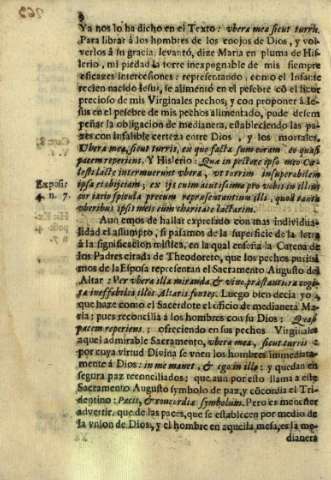 8
Ya nos lo ha dicho en el Texto: vbera mea sicut turris.
Para librar á los hombres de los enojos de Dios, y vol-
verlos á su gracia, levantó, dize Maria en pluma de His-
lerio, mi piedad la torre inexpugnable de mis siempre
eficazes intercesiones: representando, como el Infante
recien nacido Iesus, se alimentó en el pesebre cõ el licor
precioso de mis Virginales pechos, y con proponer à Ie-
sus en el pesebre de mis pechos alimentado, pude desem
peñar la obligacion de medianera, estableciendo las pa-
zes con infalible certeza entre Dios, y los mortales.
Vbera mea, sicut turris, ex quo facta sum coram eo quasi
pacem reperiens. Y Hislerio: Quæ in pectore ipso meo Cæ-
lesti lacte intermuerunt vbera, vt torrim insuperabilem
ipsa
Exposit
4. n. 7.
vberibus ipsis meis cum vbertate lactatim.
Aun emos de hallar expresado con mas individua-
lidad el assumpto, si pasamos de la superficie de la letra
à la significacion mistica, en la qual enseña la Catena de
los Padres citada de Theodoreto, que los pechos purisi
mos de la Esposa representan el Sacramento Augusto del
Altar: Per vbera illa miranda, &
Luego bien decia yo
que haze como el Sacerdote el oficio de medianera Ma-
ria; pues reconcilia á los hombres con su Dios: Quasi
pacem reperiens: ofreciendo en sus pechos Virginales
aquel admirable Sacramento, vbera mea, sicut turris
por cuya virtud Divina se vnen los hombres immediata-
mente á Dios: in me manet, & ego in illo: y quedan en
segura paz reconciliados; que aun por esto llama a este
Sacramento Augusto symbolo de paz, y cõcordia el Tri-
dentino: Pacis, & concordiæ symbolum. Pero es menester
advertir, que de las paces, que se establecen por medio de
la vnion de Dios, y el hombre en aquella mesa, es la me-
dianera